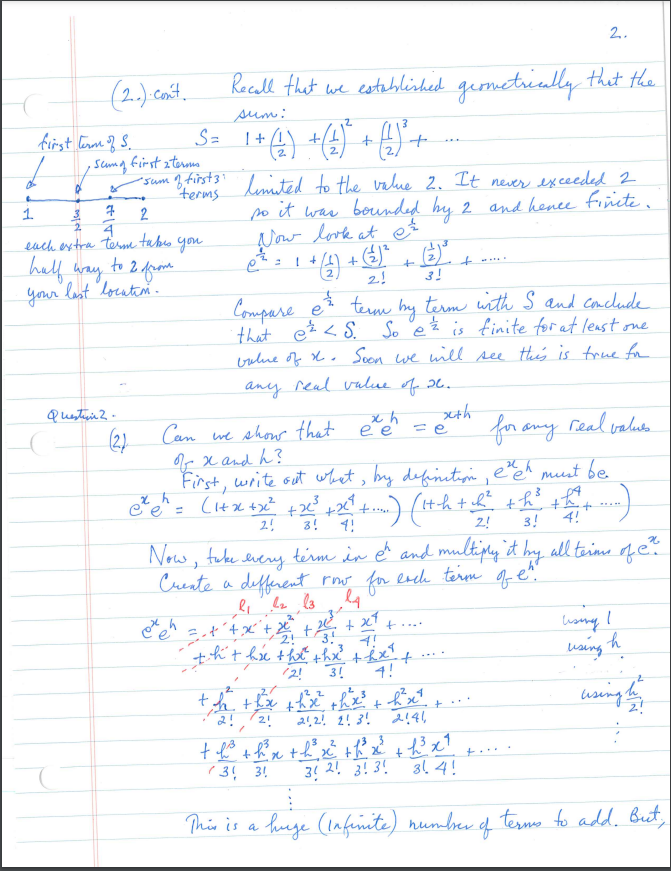 2.
(2.) con't. Recall that we established geometrically that the
sum:
S = 1 + (1/2) + (1/2)^2 + (1/2)^3 + ...
first term of S.
sum of first 2 terms
sum of first 3 terms
1 3/2 7/4 2
each extra term takes you
half way to 2 from
your last location.
limited to the value 2. It never exceeded 2
so it was bounded by 2 and hence finite.
Now look at e^(1/2)
e^(1/2) = 1 + (1/2) + (1/2)^2/2! + (1/2)^3/3! + ......
Compare e^(1/2) term by term with S and conclude
that e^(1/2) < S. So e^(1/2) is finite for at least one
value of x. Soon we will see this is true for
any real value of x.
Question 2.
(2) Can we show that e^x e^h = e^(x+h) for any real values
of x and h?
First, write out what, by definition, e^x e^h must be.
e^x e^h = (1 + x + x^2/2! + x^3/3! + x^4/4! + .....) (1 + h + h^2/2! + h^3/3! + h^4/4! + .....)
Now, take every term in e^h and multiply it by all terms of e^x.
Create a different row for each term of e^h.
l1 l2 l3 l4
e^x e^h = 1 + x + x^2/2! + x^3/3! + x^4/4! + .... using 1
+ h + hx + hx^2/2! + hx^3/3! + hx^4/4! + .... using h
+ h^2/2! + h^2x/2! + h^2x^2/2!2! + h^2x^3/2!3! + h^2x^4/2!4! + ... using h^2/2!
+ h^3/3! + h^3x/3! + h^3x^2/3!2! + h^3x^3/3!3! + h^3x^4/3!4! + ....
This is a huge (infinite) number of terms to add. But,